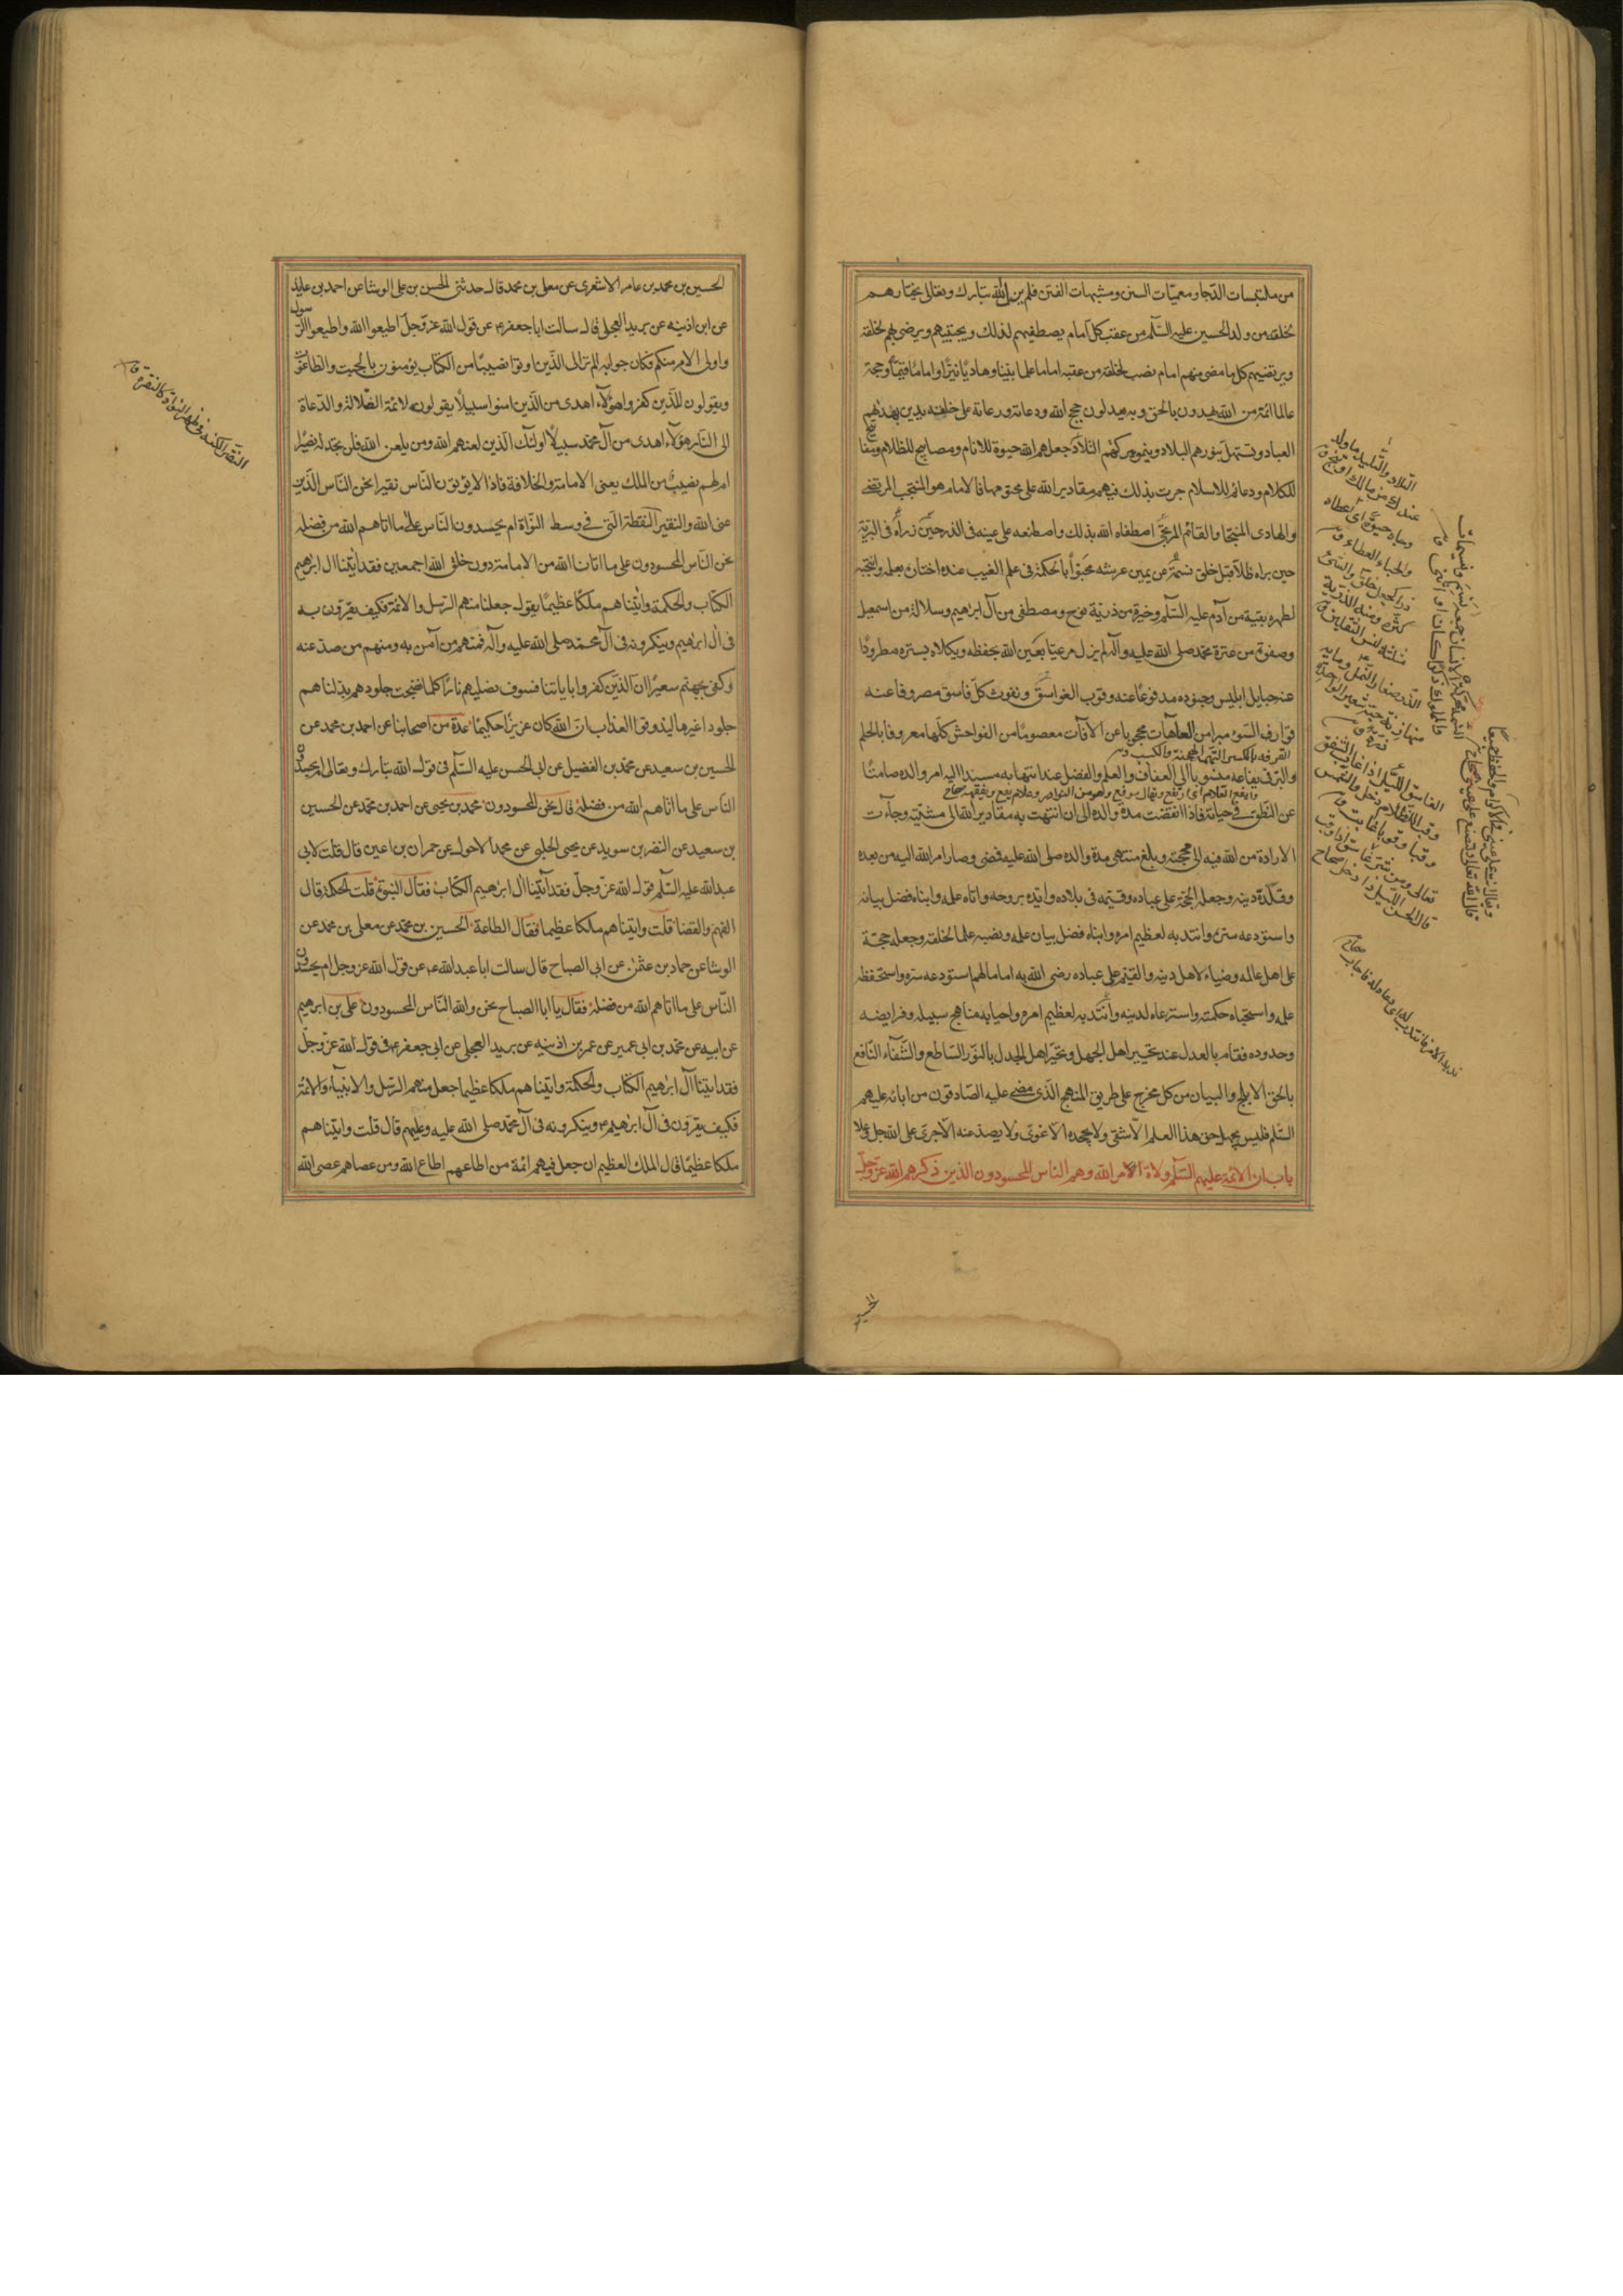 من ملتبسات الدجا ومعميات السنن ومشبهات الفتن فلم يزل الله تبارك وتعالى يختارهم
لخلقه من ولد الحسين عليه السلم من عقب كل امام يصطفيهم لذلك ويجتبيهم ويرضى بهم لخلقه
ويرتضيهم كل ما مضى منهم امام نصب لخلقه من عقبه اماما علما بينا وهاديا نيرا واماما قيما وحجة
عالما ائمة من الله يهدون بالحق وبه يعدلون حجج الله ودعاته ورعاته على خلقه يدين بهديهم
العباد وتستهل بنورهم البلاد وينمو ببركتهم التلاد جعلهم الله حيوة للانام ومصابيح للظلام ومفاتيح
للكلام ودعائم للاسلام جرت بذلك فيهم مقادير الله على محتومها فالامام هو المنتجب المرتضى
والهادى المنتجا والقائم المرتجى اصطفاه الله بذلك واصطنعه على عينه فى الذر حين ذراه فى البرية
حين براه ظلا قبل خلق نسمة عن يمين عرشه محبوا بالحكمة فى علم الغيب عنده اختاره بعلمه وانتجبه
لطهره بقية من آدم عليه السلم وخيرة من ذرية نوح ومصطفى من آل ابرهيم وسلالة من اسمعيل
وصفوة من عترة محمد صلى الله عليه وآله لم يزل مرعيا بعين الله يحفظه ويكلاه بستره مطرودا
عنه حبايل ابليس وجنوده مدفوعا عنه وقوب الغواسق ونفوث كل فاسق مصروفا عنه
قوارف السوء مبرا من العاهات محجوبا عن الآفات معصوما من الفواحش كلها معروفا بالحلم
والبر فى يفاعه منسوبا الى العفاف والعلم والفضل عند انتهايه مسندا اليه امر والده صامتا
عن النطق فى حياته فاذا انقضت مدة والده الى ان انتهت به مقادير الله الى مشيته وجآءت
الارادة من الله فيه الى محبته وبلغ منتهى مدة والده صلى الله عليه فمضى وصار امر الله اليه من بعده
وقلده دينه وجعله الحجة على عباده وقيمه فى بلاده وايده بروحه واتاه علمه وانباه فضل بيانه
واستودعه سره وانتدبه لعظيم امره وانباه فضل بيان علمه ونصبه علما لخلقه وجعله حجة
على اهل عالمه وضياء لاهل دينه والقيم على عباده رضى الله به اماما لهم استودعه سره واستحفظه
علمه واستخباه حكمته واسترعاه لدينه وانتدبه لعظيم امره واحيا به مناهج سبيله وفرايضه
وحدوده فقام بالعدل عند تحيير اهل الجهل وتحير اهل الجدل بالنور الساطع والشفآء النافع
بالحق الابلج والبيان من كل مخرج على طريق المنهج الذى مضى عليه الصادقون من ابائه عليهم
السلم فليس يجهل حق هذا العلم الا شقى ولا يجحده الا غوى ولا يصد عنه الا جرى على الله جل وعلا
باب ان الائمة عليهم السلم ولاة الامر الله وهم الناس المحسودون الذين ذكرهم الله عز وجل
الحسين
الحسين بن محمد بن عامر الاشعرى عن معلى بن محمد قال حدثنى الحسن بن على الوشا عن احمد بن عايذ
عن ابن اذينه عن بريد العجلى قال سالت ابا جعفر ع عن قول الله عز وجل اطيعوا الله واطيعوا الرسول
واولى الامر منكم فكان جوابه الم تر الى الذين اوتوا نصيبا من الكتاب يؤمنون بالجبت والطاغوت
ويقولون للذين كفروا هؤلآء اهدى من الذين امنوا سبيلا يقولون لائمة الضلالة والدعاة
الى النار هؤلآء اهدى من آل محمد سبيلا اولئك الذين لعنهم الله ومن يلعن الله فلن تجد له نصيرا
ام لهم نصيب من الملك يعنى الامامة والخلافة فاذا لا يؤتون الناس نقيرا نحن الناس الذين
عنى الله والنقير النقطة التى فى وسط النواة ام يحسدون الناس على ما اتاهم الله من فضله
نحن الناس المحسودون على ما اتانا الله من الامامة دون خلق الله اجمعين فقد اتينا ال ابرهيم
الكتاب والحكمة واتيناهم ملكا عظيما يقول جعلنا منهم الرسل والائمة فكيف يقرون به
فى ال ابرهيم وينكرونه فى آل محمد صلى الله عليه وآله فمنهم من آمن به ومنهم من صد عنه
وكفى بجهنم سعيرا ان الذين كفروا باياتنا فسوف نصليهم نارا كلما نضجت جلودهم بدلناهم
جلودا غيرها ليذوقوا العذاب ان الله كان عزيزا حكيما عدة من اصحابنا عن احمد بن محمد عن
الحسين بن سعيد عن محمد بن الفضيل عن ابى الحسن عليه السلم فى قول الله تبارك وتعالى ام يحسدون
الناس على ما اتاهم الله من فضله قال نحن المحسودون محمد بن يحيى عن احمد بن محمد عن الحسين
بن سعيد عن النضر بن سويد عن يحيى الحلبى عن محمد الاحول عن حمران بن اعين قال قلت لابى
عبد الله عليه السلم قول الله عز وجل فقد اتينا ال ابرهيم الكتاب فقال النبوة قلت الحكمة قال
الفهم والقضا قلت واتيناهم ملكا عظيما فقال الطاعة الحسين بن محمد عن معلى بن محمد عن
الوشا عن حماد بن عثمن عن ابى الصباح قال سالت ابا عبد الله ع عن قول الله عز وجل ام يحسدون
الناس على ما اتاهم الله من فضله فقال يا ابا الصباح نحن والله الناس المحسودون على بن ابرهيم
عن ابيه عن محمد بن ابى عمير عن عمر بن اذينه عن بريد العجلى عن ابى جعفر ع فى قول الله عز وجل
فقد اتينا آل ابرهيم الكتاب والحكمة واتيناهم ملكا عظيما جعل منهم الرسل والانبيآء والائمة
فكيف يقرون فى آل ابرهيم ع وينكرونه فى آل محمد صلى الله عليه وعليهم قال قلت واتيناهم
ملكا عظيما قال الملك العظيم ان جعل فيهم ائمة من اطاعهم اطاع الله ومن عصاهم عصى الله